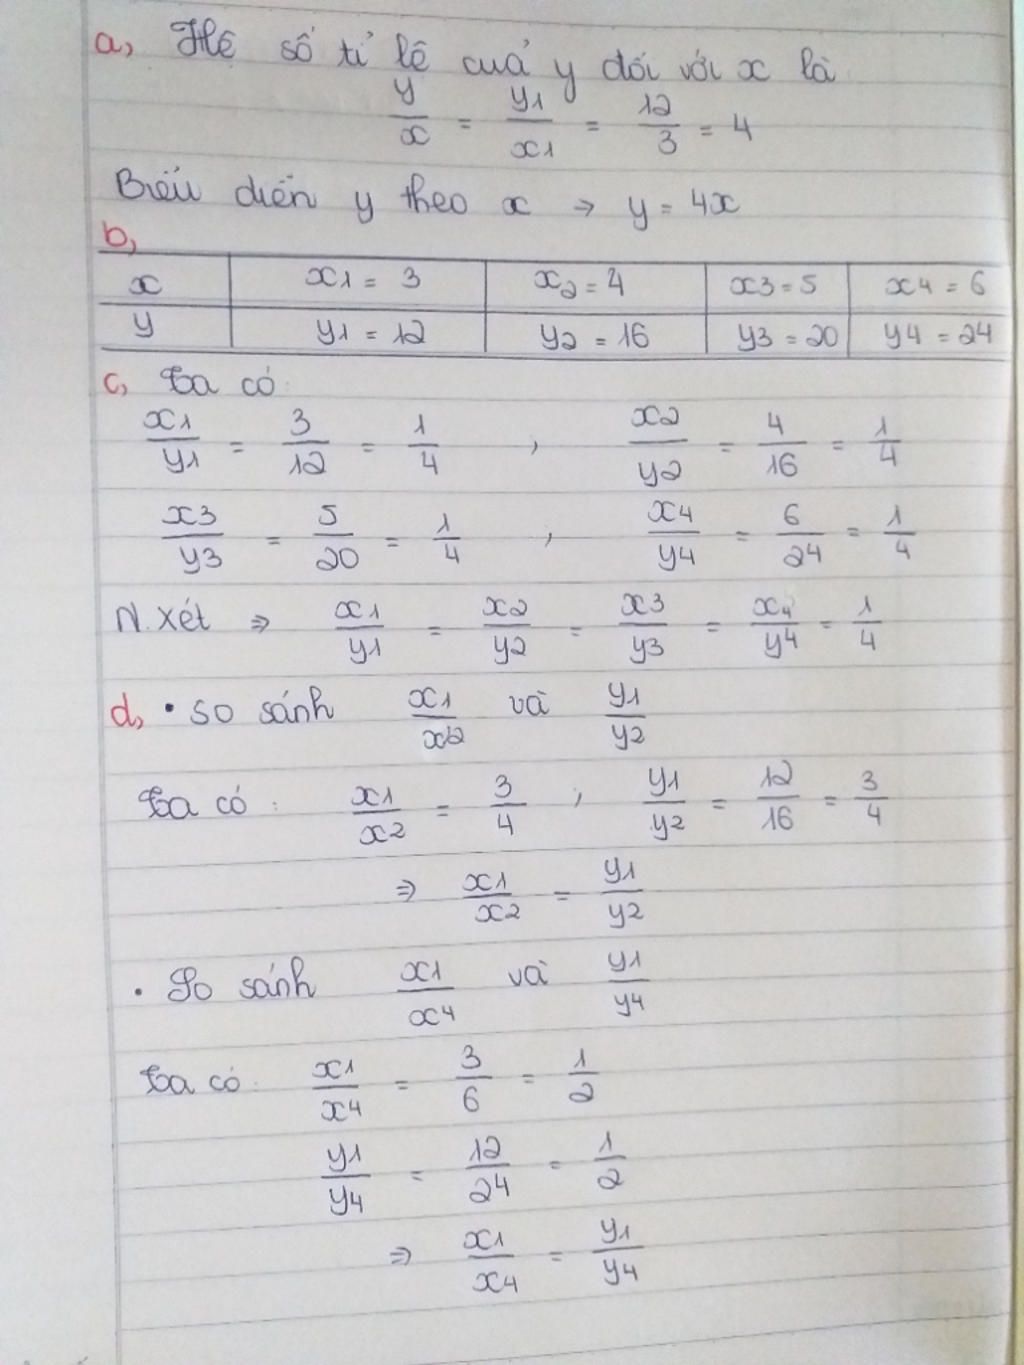 a, Hệ số tỉ lệ của y đối với x là
y/x = y1/x1 = 12/3 = 4
Biểu diễn y theo x ⇒ y = 4x
b,
x | x1 = 3 | x2 = 4 | x3 = 5 | x4 = 6
y | y1 = 12 | y2 = 16 | y3 = 20 | y4 = 24
c, Ta có:
x1/y1 = 3/12 = 1/4 , x2/y2 = 4/16 = 1/4
x3/y3 = 5/20 = 1/4 , x4/y4 = 6/24 = 1/4
N.xét ⇒ x1/y1 = x2/y2 = x3/y3 = x4/y4 = 1/4
d, • so sánh x1/x2 và y1/y2
Ta có : x1/x2 = 3/4 , y1/y2 = 12/16 = 3/4
⇒ x1/x2 = y1/y2
• So sánh x1/x4 và y1/y4
Ta có: x1/x4 = 3/6 = 1/2
y1/y4 = 12/24 = 1/2
⇒ x1/x4 = y1/y4